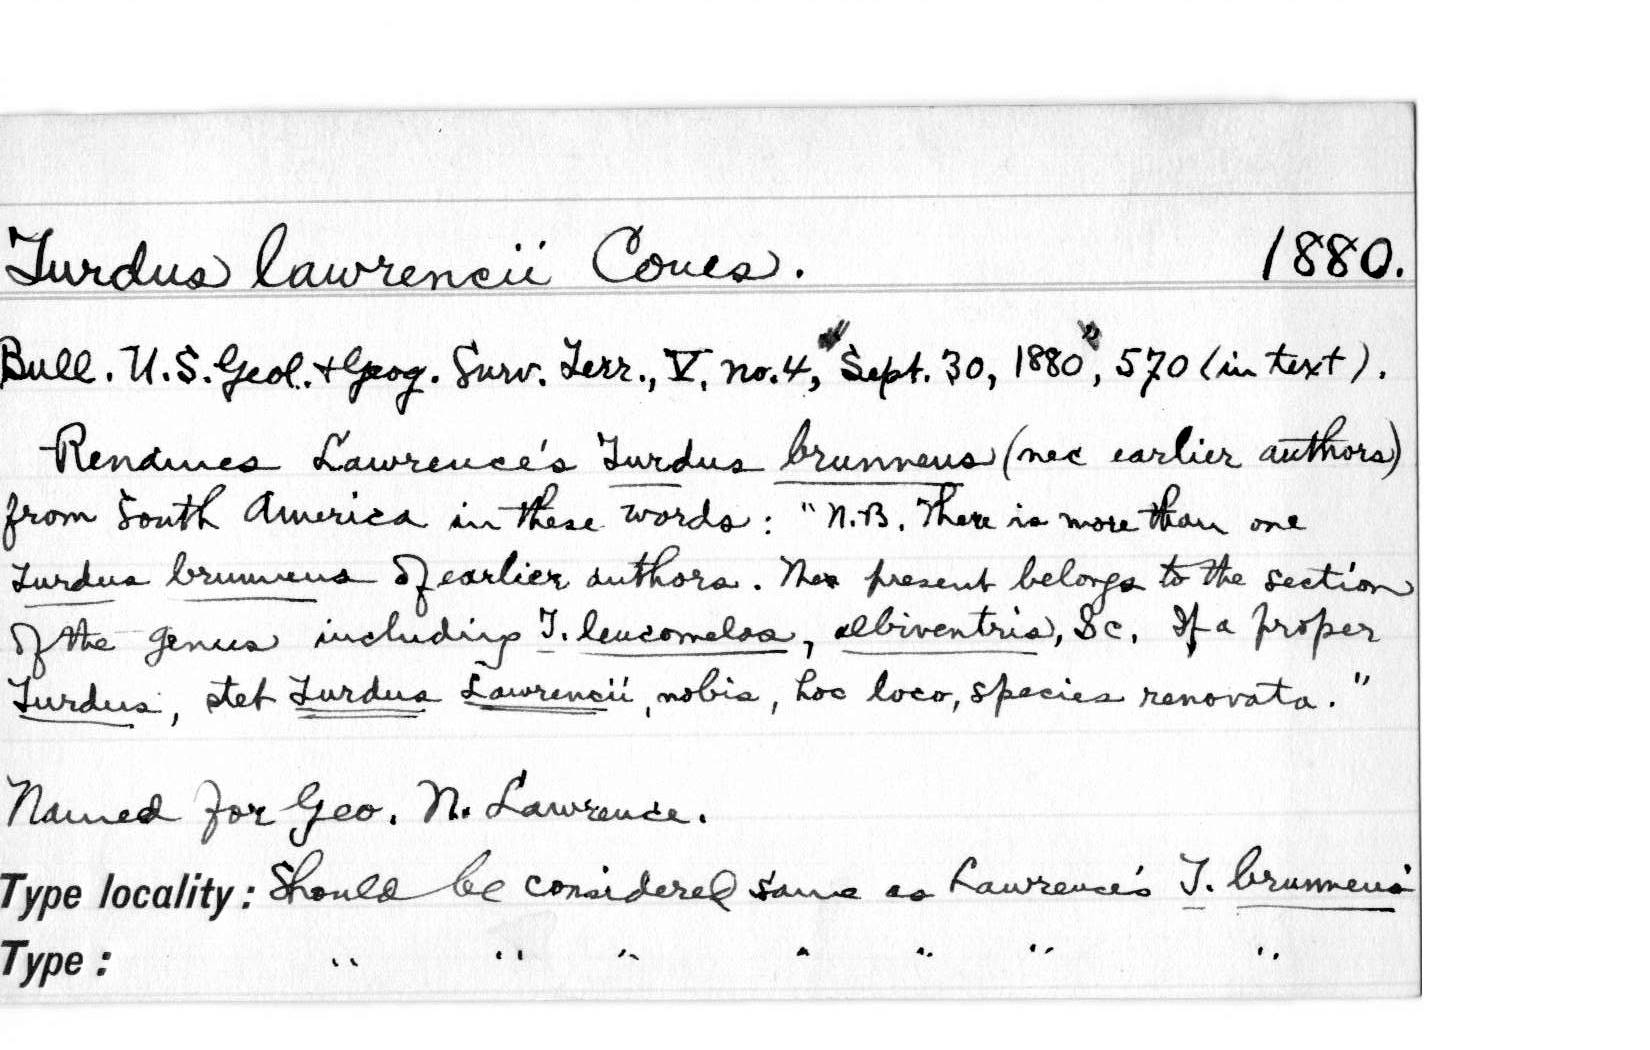 Turdus lawrencii Coues. 1880.
Bull. U.S. Geol. + Geog. Surv. Terr., V, no. 4, "Sept. 30, 1880", 570 (in text).
Renames Lawrence's Turdus brunneus (nec earlier authors)
from South America in these words: "N.B. There is more than one
Turdus brunneus of earlier authors. The present belongs to the section
of the genus including T. leucomelas, albiventris, &c. If a proper
Turdus, stet Turdus Lawrencii, nobis, hoc loco, species renovata."
Named for Geo. N. Lawrence.
Type locality: Should be considered same as Lawrence's T. brunneus
Type: " " " " " " "